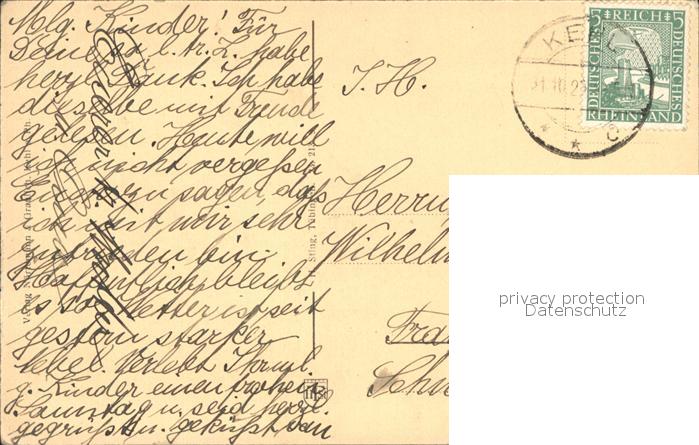 Mlg. Kinder! Für
Deine l. Kr. Z. habe
herzl. Dank. Ich habe
dieselbe mit Freude
gelesen. Heute will
ich nicht vergessen
Euch zu sagen, daß
ich mit mir sehr
zufrieden bin.
Hoffentlich bleibt
es so. Wetter ist seit
gestern starker
Nebel. Verlebt
g. Kinder einen frohen
Sonntag u. seid herzl.
gegrüßt u. geküßt von
Eurer
T. H.
Herrn
Wilhelm
Fra
Schw
KEHL
31.10.25
5 REICH 5
DEUTSCHES
DEUTSCHES
RHEINLAND
privacy protection
Datenschutz